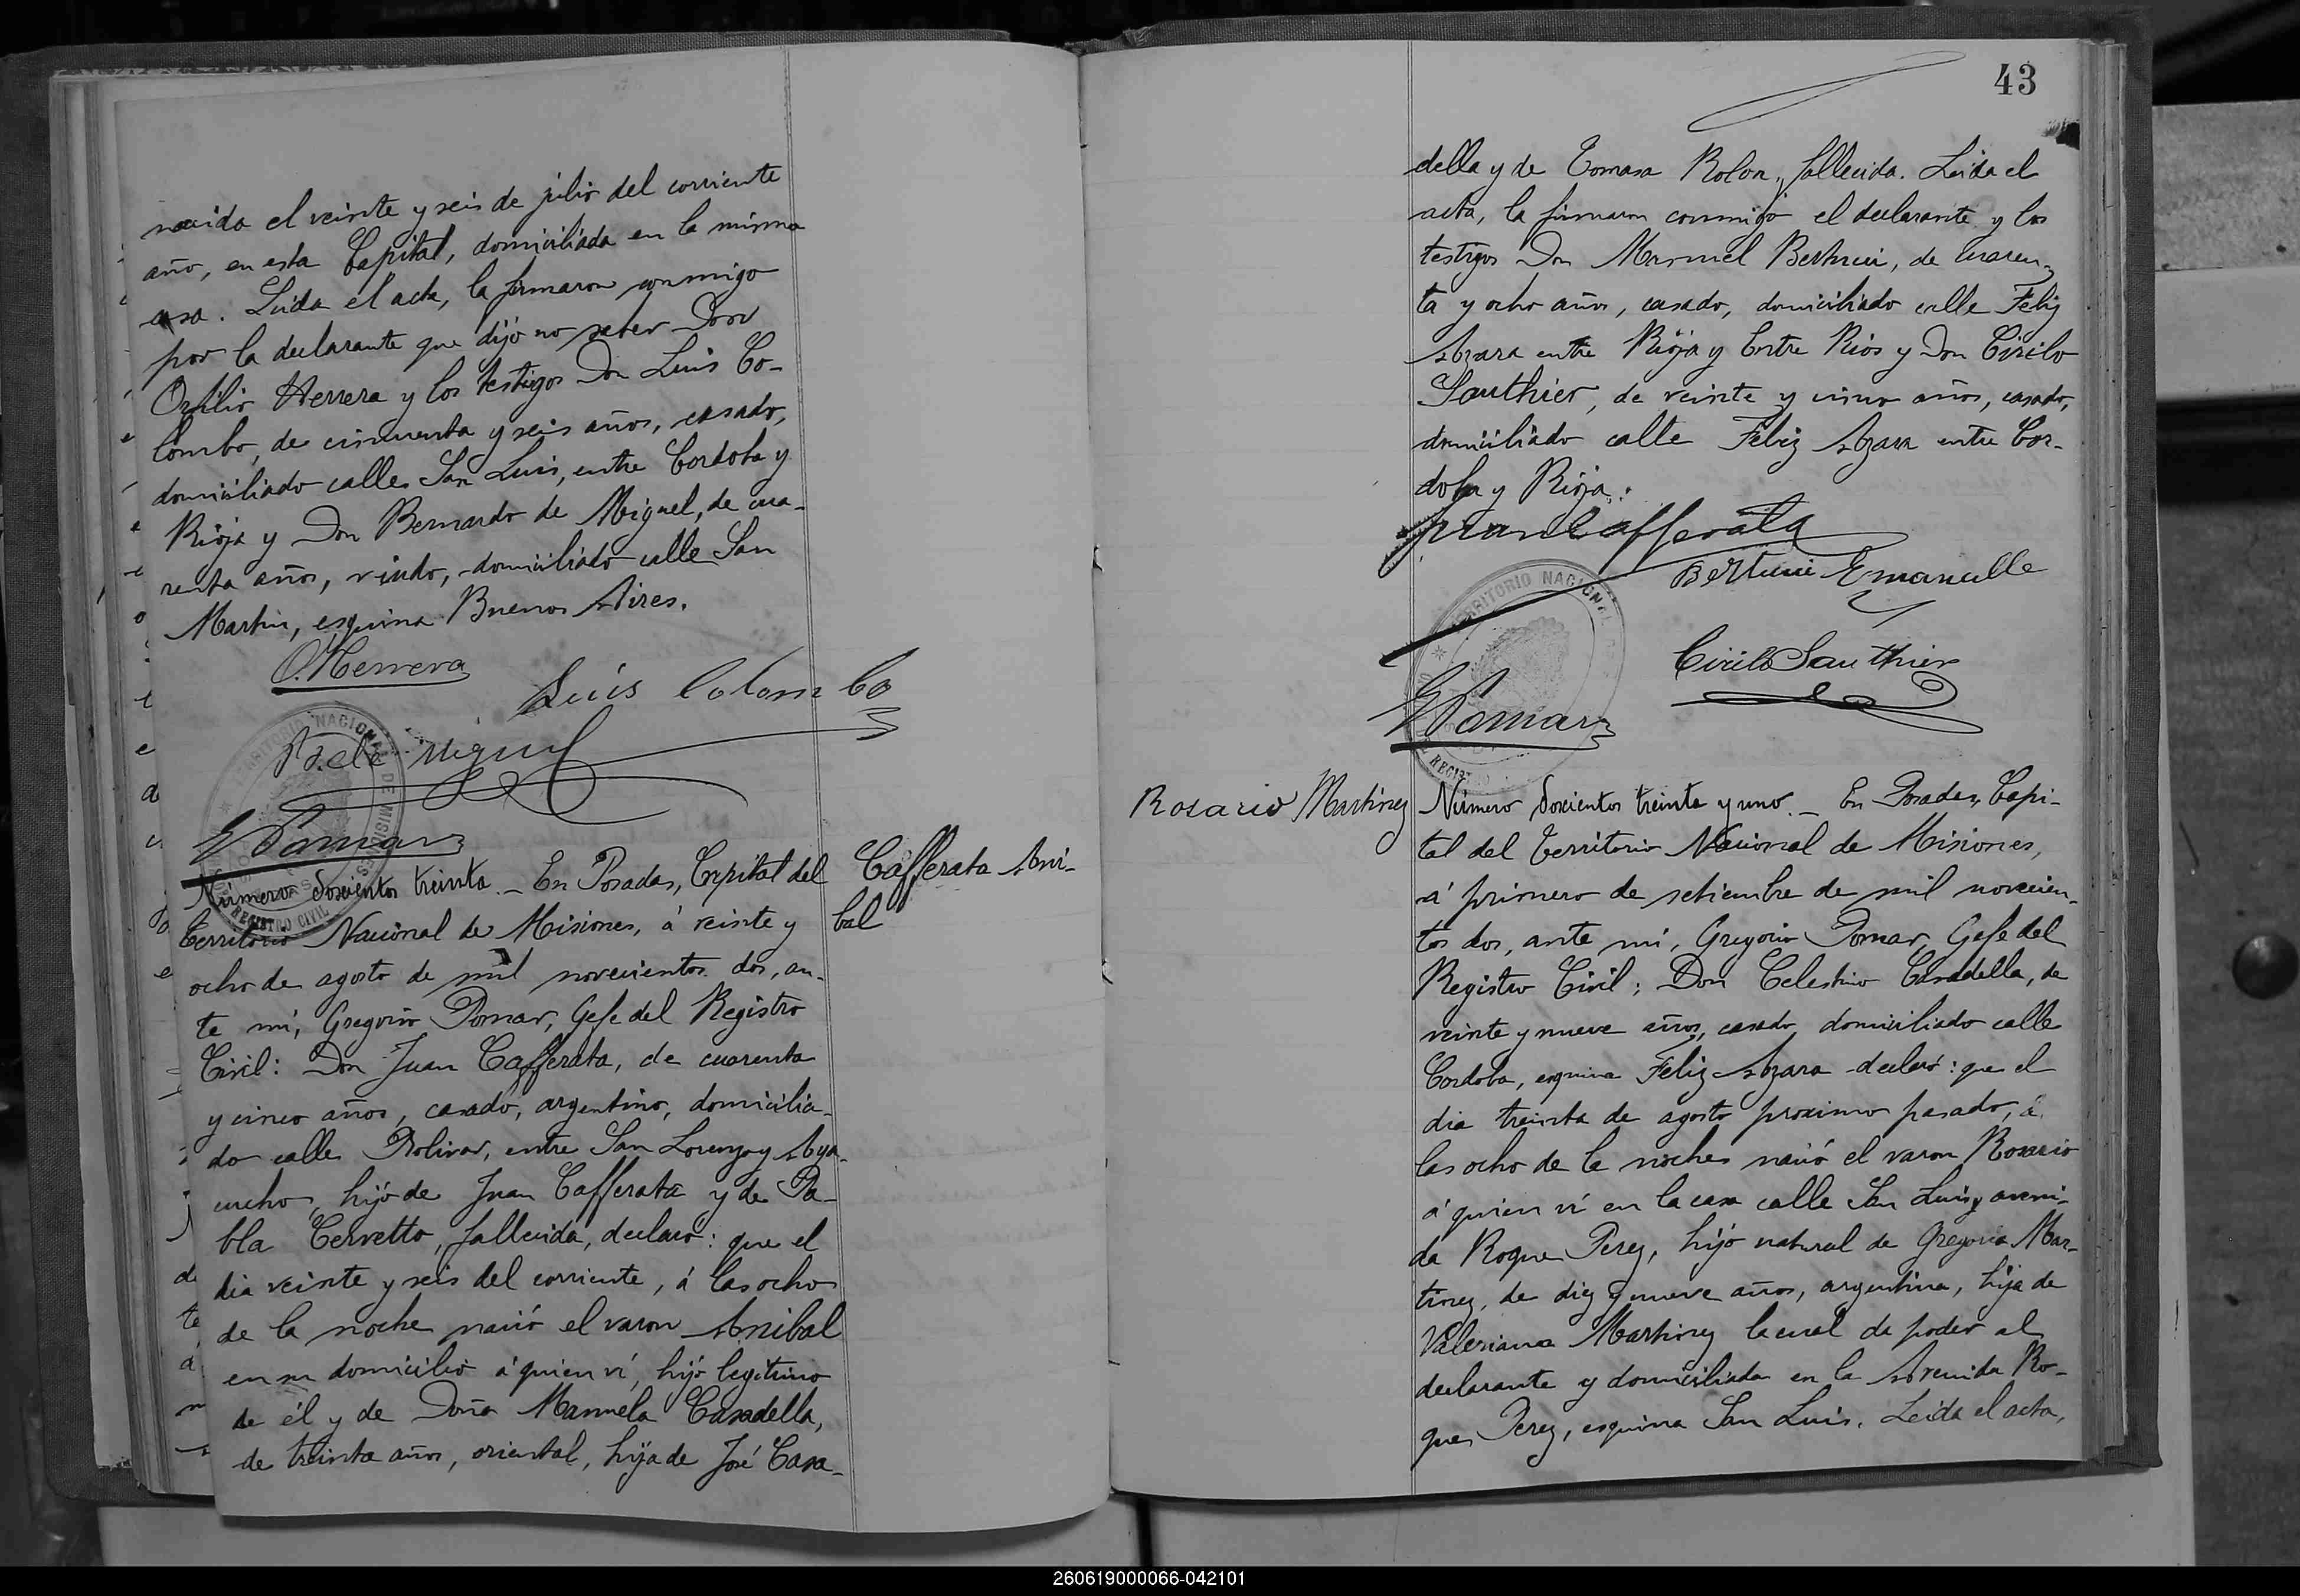 nacida el veinte y seis de julio del corriente
año, en esta Capital, domiciliada en la misma
casa. Leida el acta, la firmaron conmigo
por la declarante que dijo no saber Don
Orfilio Herrera y los testigos Don Luis Co-
lombo, de cincuenta y seis años, casado,
domiciliado calle San Luis, entre Cordoba y
Rioja y Don Bernardo de Miguel, de cua-
renta años, viudo, domiciliado calle San
Martin, esquina Buenos Aires.
O. Herrera
Luis Colombo
B. de Miguel
G Pomar
TERRITORIO NACIONAL DE MISIONES
REGISTRO CIVIL
Cafferata Ani-
bal
Número doscientos treinta._ En Posadas, Capital del
Territorio Nacional de Misiones, á veinte y
ocho de agosto de mil novecientos dos, an-
te mi, Gregorio Pomar, Gefe del Registro
Civil: Don Juan Cafferata, de cuarenta
y cinco años, casado, argentino, domicilia-
do calle Bolivar, entre San Lorenzo y Aya-
cucho, hijo de Juan Cafferata y de Pa-
bla Cervetto, fallecida, declaro: que el
dia veinte y seis del corriente, á las ocho
de la noche nació el varon Anibal
en su domicilio á quien ví, hijo legitimo
de él y de Doña Manuela Casadella,
de treinta años, oriental, hija de José Casa-
43
della y de Tomasa Rolon, fallecida. Leida el
acta, la firmaron conmigo el declarante y los
testigos Don Manuel Bertucci, de cuaren-
ta y ocho años, casado, domiciliado calle Feliz
Azara entre Rioja y Entre Rios y Don Cirilo
Sauthier, de veinte y cinco años, casado,
domiciliado calle Feliz Azara entre Cor-
doba y Rioja.
Juan Cafferata
Bertucci Emanuelle
Cirilo Sauthier
G Pomar
TERRITORIO NACIONAL
REGISTRO
Rosario Martinez
Número doscientos treinta y uno._ En Posadas, Capi-
tal del Territorio Nacional de Misiones,
á primero de setiembre de mil novecien-
tos dos, ante mí, Gregorio Pomar, Gefe del
Registro Civil; Don Celestino Casadella, de
veinte y nueve años, casado, domiciliado calle
Cordoba, esquina Feliz Azara declaró: que el
dia treinta de agosto proximo pasado, á
las ocho de la noche nació el varon Rosario
á quien ví en la casa calle San Luis y aveni-
da Roque Perez, hijo natural de Gregoria Mar-
tinez, de diez y nueve años, argentina, hija de
Valeriana Martinez la cual da poder al
declarante y domiciliada en la Avenida Ro-
que Perez, esquina San Luis. Leida el acta,
260619000066-042101